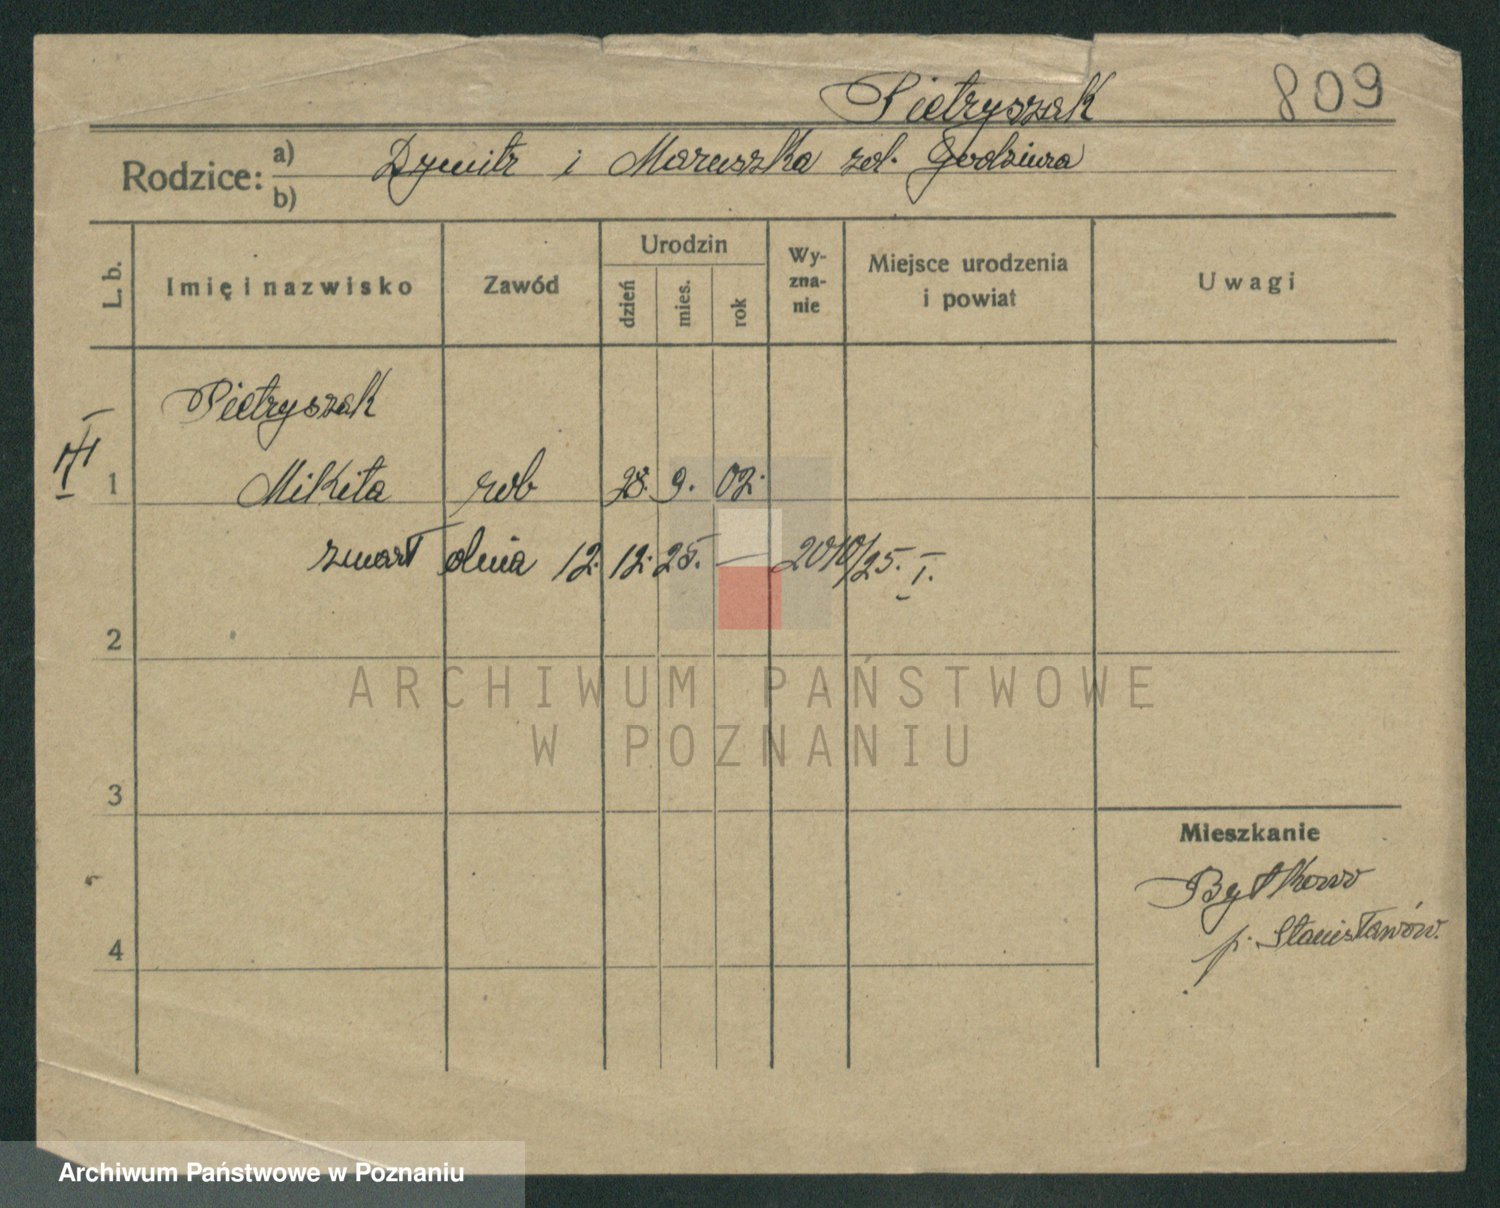 Pietryszak 809
Rodzice: a) Dymitr i Maruszka zd. Godziura
b)
L. b. Imię i nazwisko Zawód Urodzin dzień mies. rok Wyznanie Miejsce urodzenia i powiat Uwagi
Pietryszak
1 Mikita rob 28. 9. 02.
zmarł dnia 12. 12. 25. — 2010/25. I.
2
ARCHIWUM PAŃSTWOWE
W POZNANIU
3
Mieszkanie
Bytkowo
p. Stanisławów.
4
Archiwum Państwowe w Poznaniu